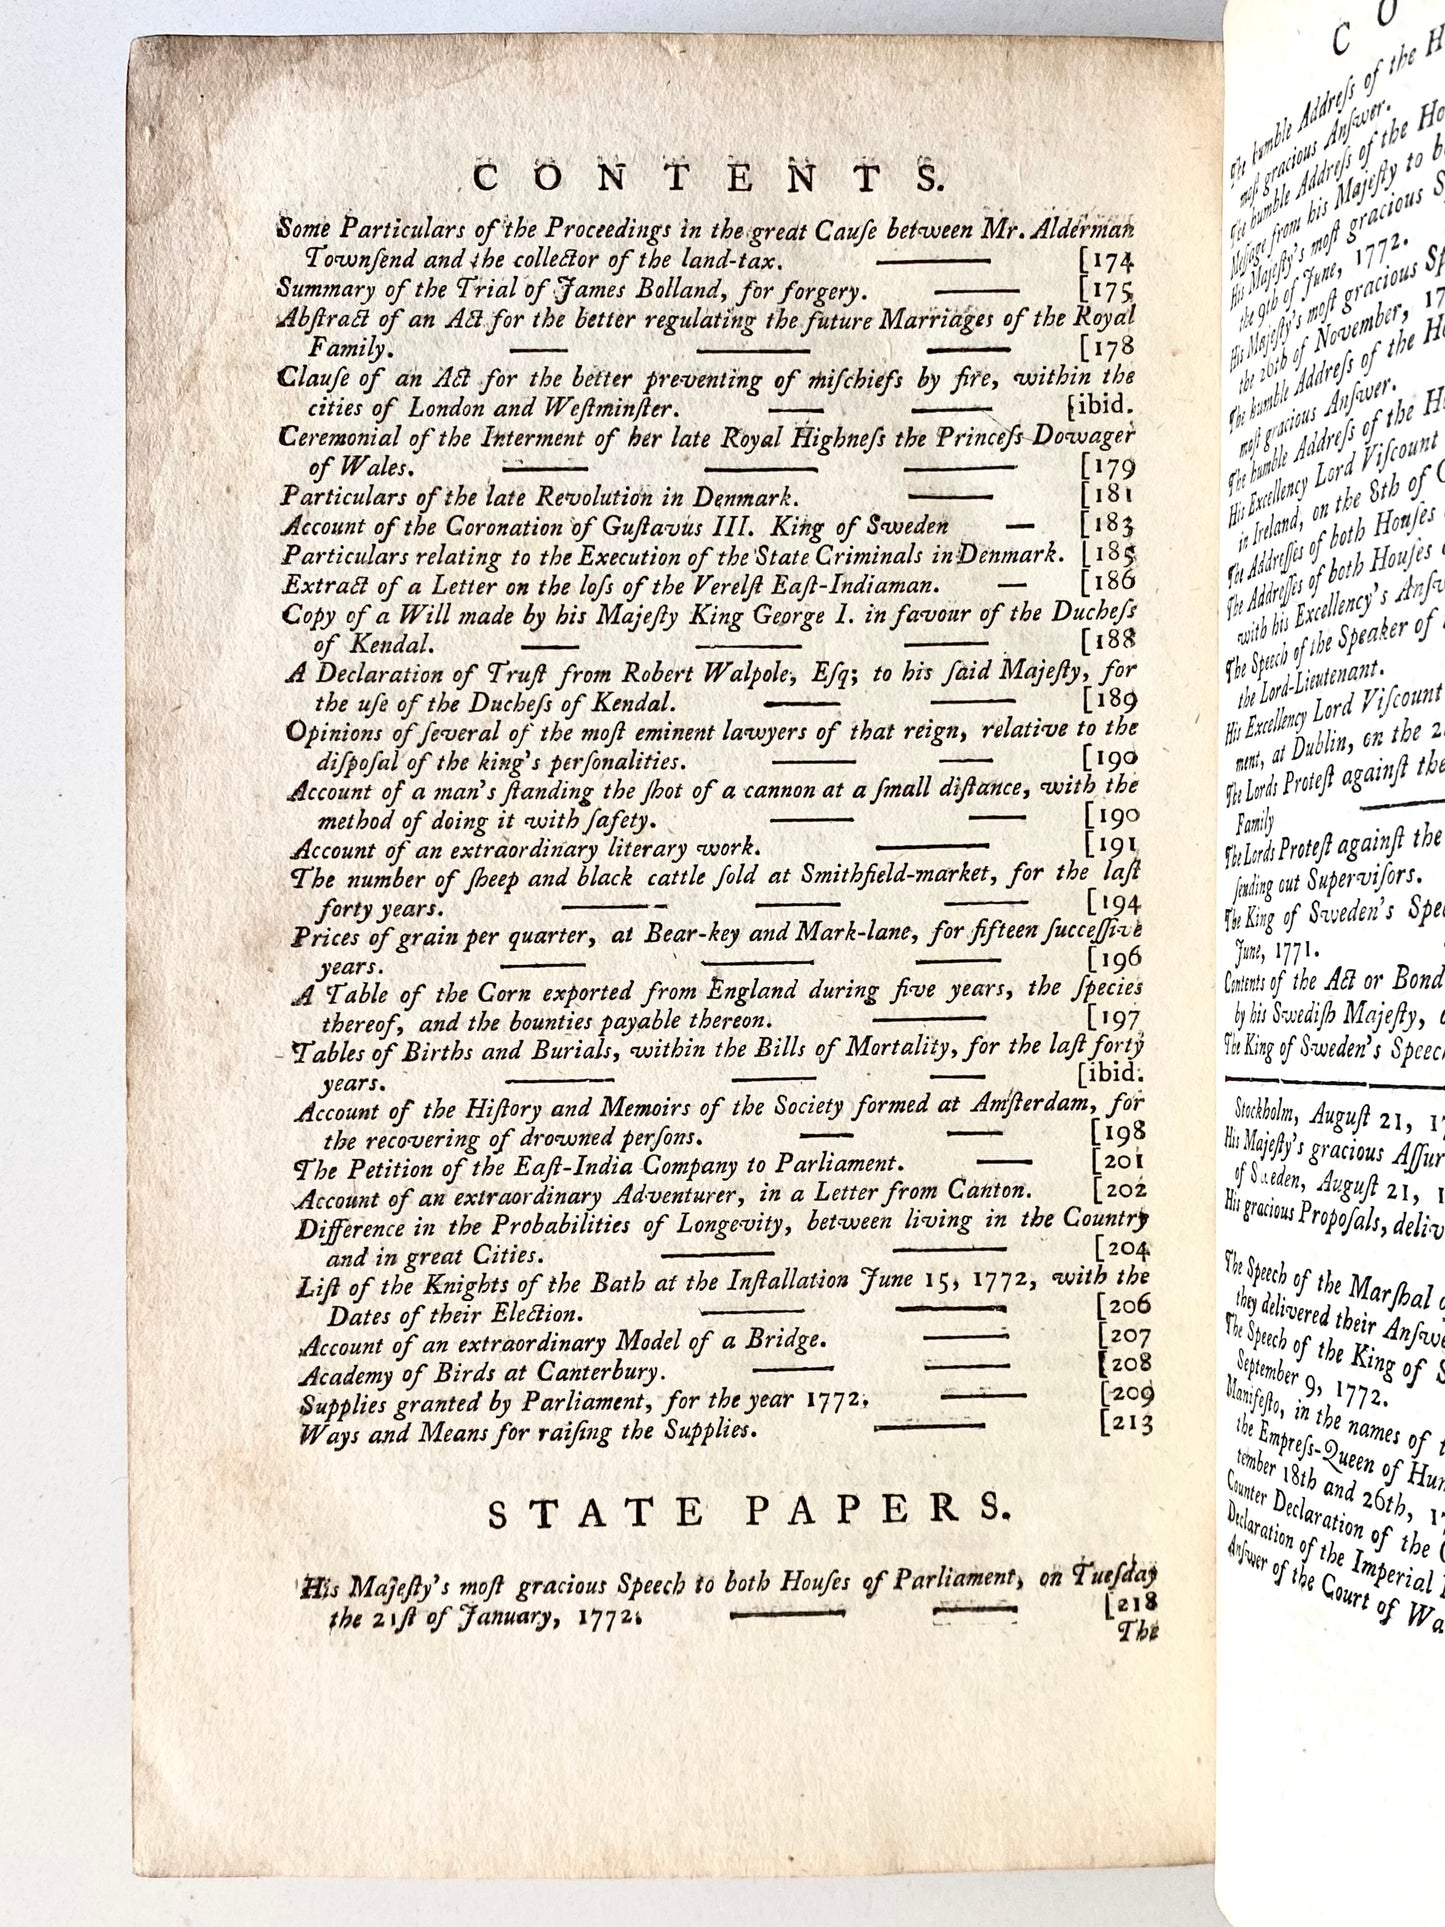 CONTENTS.
Some Particulars of the Proceedings in the great Cauſe between Mr. Alderman
Townſend and the collector of the land-tax. [174
Summary of the Trial of James Bolland, for forgery. [175
Abſtract of an Act for the better regulating the future Marriages of the Royal
Family. [178
Clauſe of an Act for the better preventing of miſchiefs by fire, within the
cities of London and Weſtminſter. [ibid.
Ceremonial of the Interment of her late Royal Highneſs the Princeſs Dowager
of Wales. [179
Particulars of the late Revolution in Denmark. [181
Account of the Coronation of Guſtavus III. King of Sweden [183
Particulars relating to the Execution of the State Criminals in Denmark. [185
Extract of a Letter on the loſs of the Verelſt Eaſt-Indiaman. [186
Copy of a Will made by his Majeſty King George I. in favour of the Ducheſs
of Kendal. [188
A Declaration of Truſt from Robert Walpole, Eſq; to his ſaid Majeſty, for
the uſe of the Ducheſs of Kendal. [189
Opinions of ſeveral of the moſt eminent lawyers of that reign, relative to the
diſpoſal of the king's perſonalities. [190
Account of a man's ſtanding the ſhot of a cannon at a ſmall diſtance, with the
method of doing it with ſafety. [190
Account of an extraordinary literary work. [191
The number of ſheep and black cattle ſold at Smithfield-market, for the laſt
forty years. [194
Prices of grain per quarter, at Bear-key and Mark-lane, for fifteen ſucceſſive
years. [196
A Table of the Corn exported from England during five years, the ſpecies
thereof, and the bounties payable thereon. [197
Tables of Births and Burials, within the Bills of Mortality, for the laſt forty
years. [ibid.
Account of the Hiſtory and Memoirs of the Society formed at Amſterdam, for
the recovering of drowned perſons. [198
The Petition of the Eaſt-India Company to Parliament. [201
Account of an extraordinary Adventurer, in a Letter from Canton. [202
Difference in the Probabilities of Longevity, between living in the Country
and in great Cities. [204
Liſt of the Knights of the Bath at the Inſtallation June 15, 1772, with the
Dates of their Election. [206
Account of an extraordinary Model of a Bridge. [207
Academy of Birds at Canterbury. [208
Supplies granted by Parliament, for the year 1772. [209
Ways and Means for raiſing the Supplies. [213
STATE PAPERS.
His Majeſty's moſt gracious Speech to both Houſes of Parliament, on Tueſday
the 21ſt of January, 1772. [218
The
C O
The humble Addreſs of the H
moſt gracious Anſwer.
The humble Addreſs of the Ho
Meſſage from his Majeſty to b
His Majeſty's moſt gracious S
the 9th of June, 1772.
His Majeſty's moſt gracious Sp
the 26th of November, 17
The humble Addreſs of the Ho
moſt gracious Anſwer.
The humble Addreſs of the H
His Excellency Lord Viſcount
in Ireland, on the 8th of O
The Addreſſes of both Houſes
The Addreſſes of both Houſes
with his Excellency's Anſw
The Speech of the Speaker of
the Lord-Lieutenant.
His Excellency Lord Viſcount
ment, at Dublin, on the 2
The Lords Proteſt againſt the
Family
The Lords Proteſt againſt the
ſending out Superviſors.
The King of Sweden's Spee
June, 1771.
Contents of the Act or Bond
by his Swediſh Majeſty,
The King of Sweden's Speec
Stockholm, Auguſt 21, 17
His Majeſty's gracious Aſſur
of Sweden, Auguſt 21, 1
His gracious Propoſals, deliv
The Speech of the Marſhal o
they delivered their Anſwe
The Speech of the King of S
September 9, 1772.
Manifeſto, in the names of t
the Empreſs-Queen of Hun
tember 18th and 26th, 17
Counter Declaration of the C
Declaration of the Imperial
Anſwer of the Court of Wa